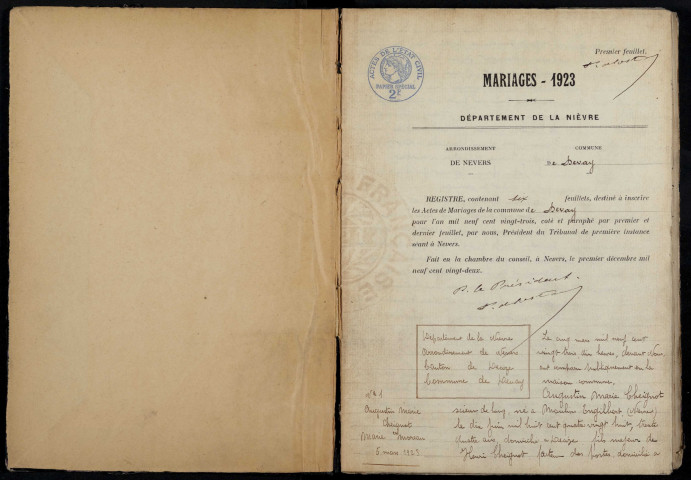 Premier feuillet.
ACTES DE L'ÉTAT CIVIL
PAPIER SPÉCIAL
2F
MARIAGES - 1923
DÉPARTEMENT DE LA NIÈVRE
ARRONDISSEMENT
DE NEVERS
COMMUNE
DE Devay
REGISTRE, contenant six feuillets, destiné à inscrire
les Actes de Mariages de la commune de Devay
pour l'an mil neuf cent vingt-trois, coté et paraphé par premier et
dernier feuillet, par nous, Président du Tribunal de première instance
séant à Nevers.
Fait en la chambre du conseil, à Nevers, le premier décembre mil
neuf cent vingt-deux.
P. le Président.
Département de la Nièvre
Arrondissement de Nevers
Canton de Decize
Commune de Devay
n° 1
Augustin Marie
Cheignot
Marie
5 mars 1923
Le cinq mars mil neuf cent
vingt trois, dix heures, devant Nous
ont comparu publiquement en la
maison commune,
Augustin Marie Cheignot
scieur de long, né à Moulins Engilbert (Nièvre)
le dix juin mil huit cent quatre vingt huit, trente
quatre ans, domicilié à Decize fils majeur de
Henri Cheignot facteur des postes, domicilié à